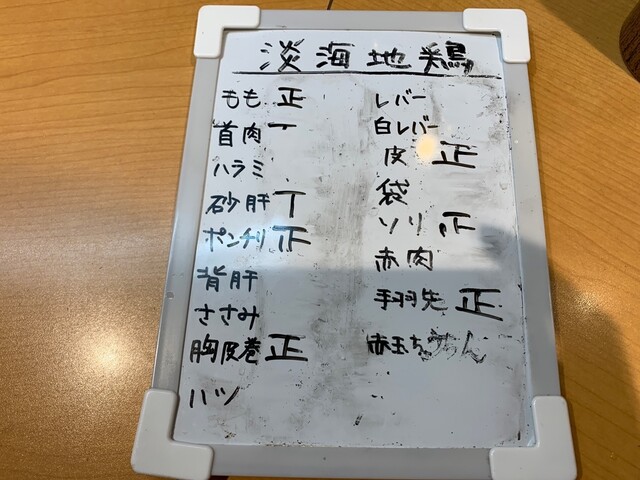 淡海地鶏
もも 正
首肉 一
ハラミ
砂肝 丅
ポンチリ 正
背肝
ささみ
胸皮巻 正
ハツ
レバー
白レバー
皮 正
袋
ソリ 正
赤肉
手羽先 正
赤玉ち